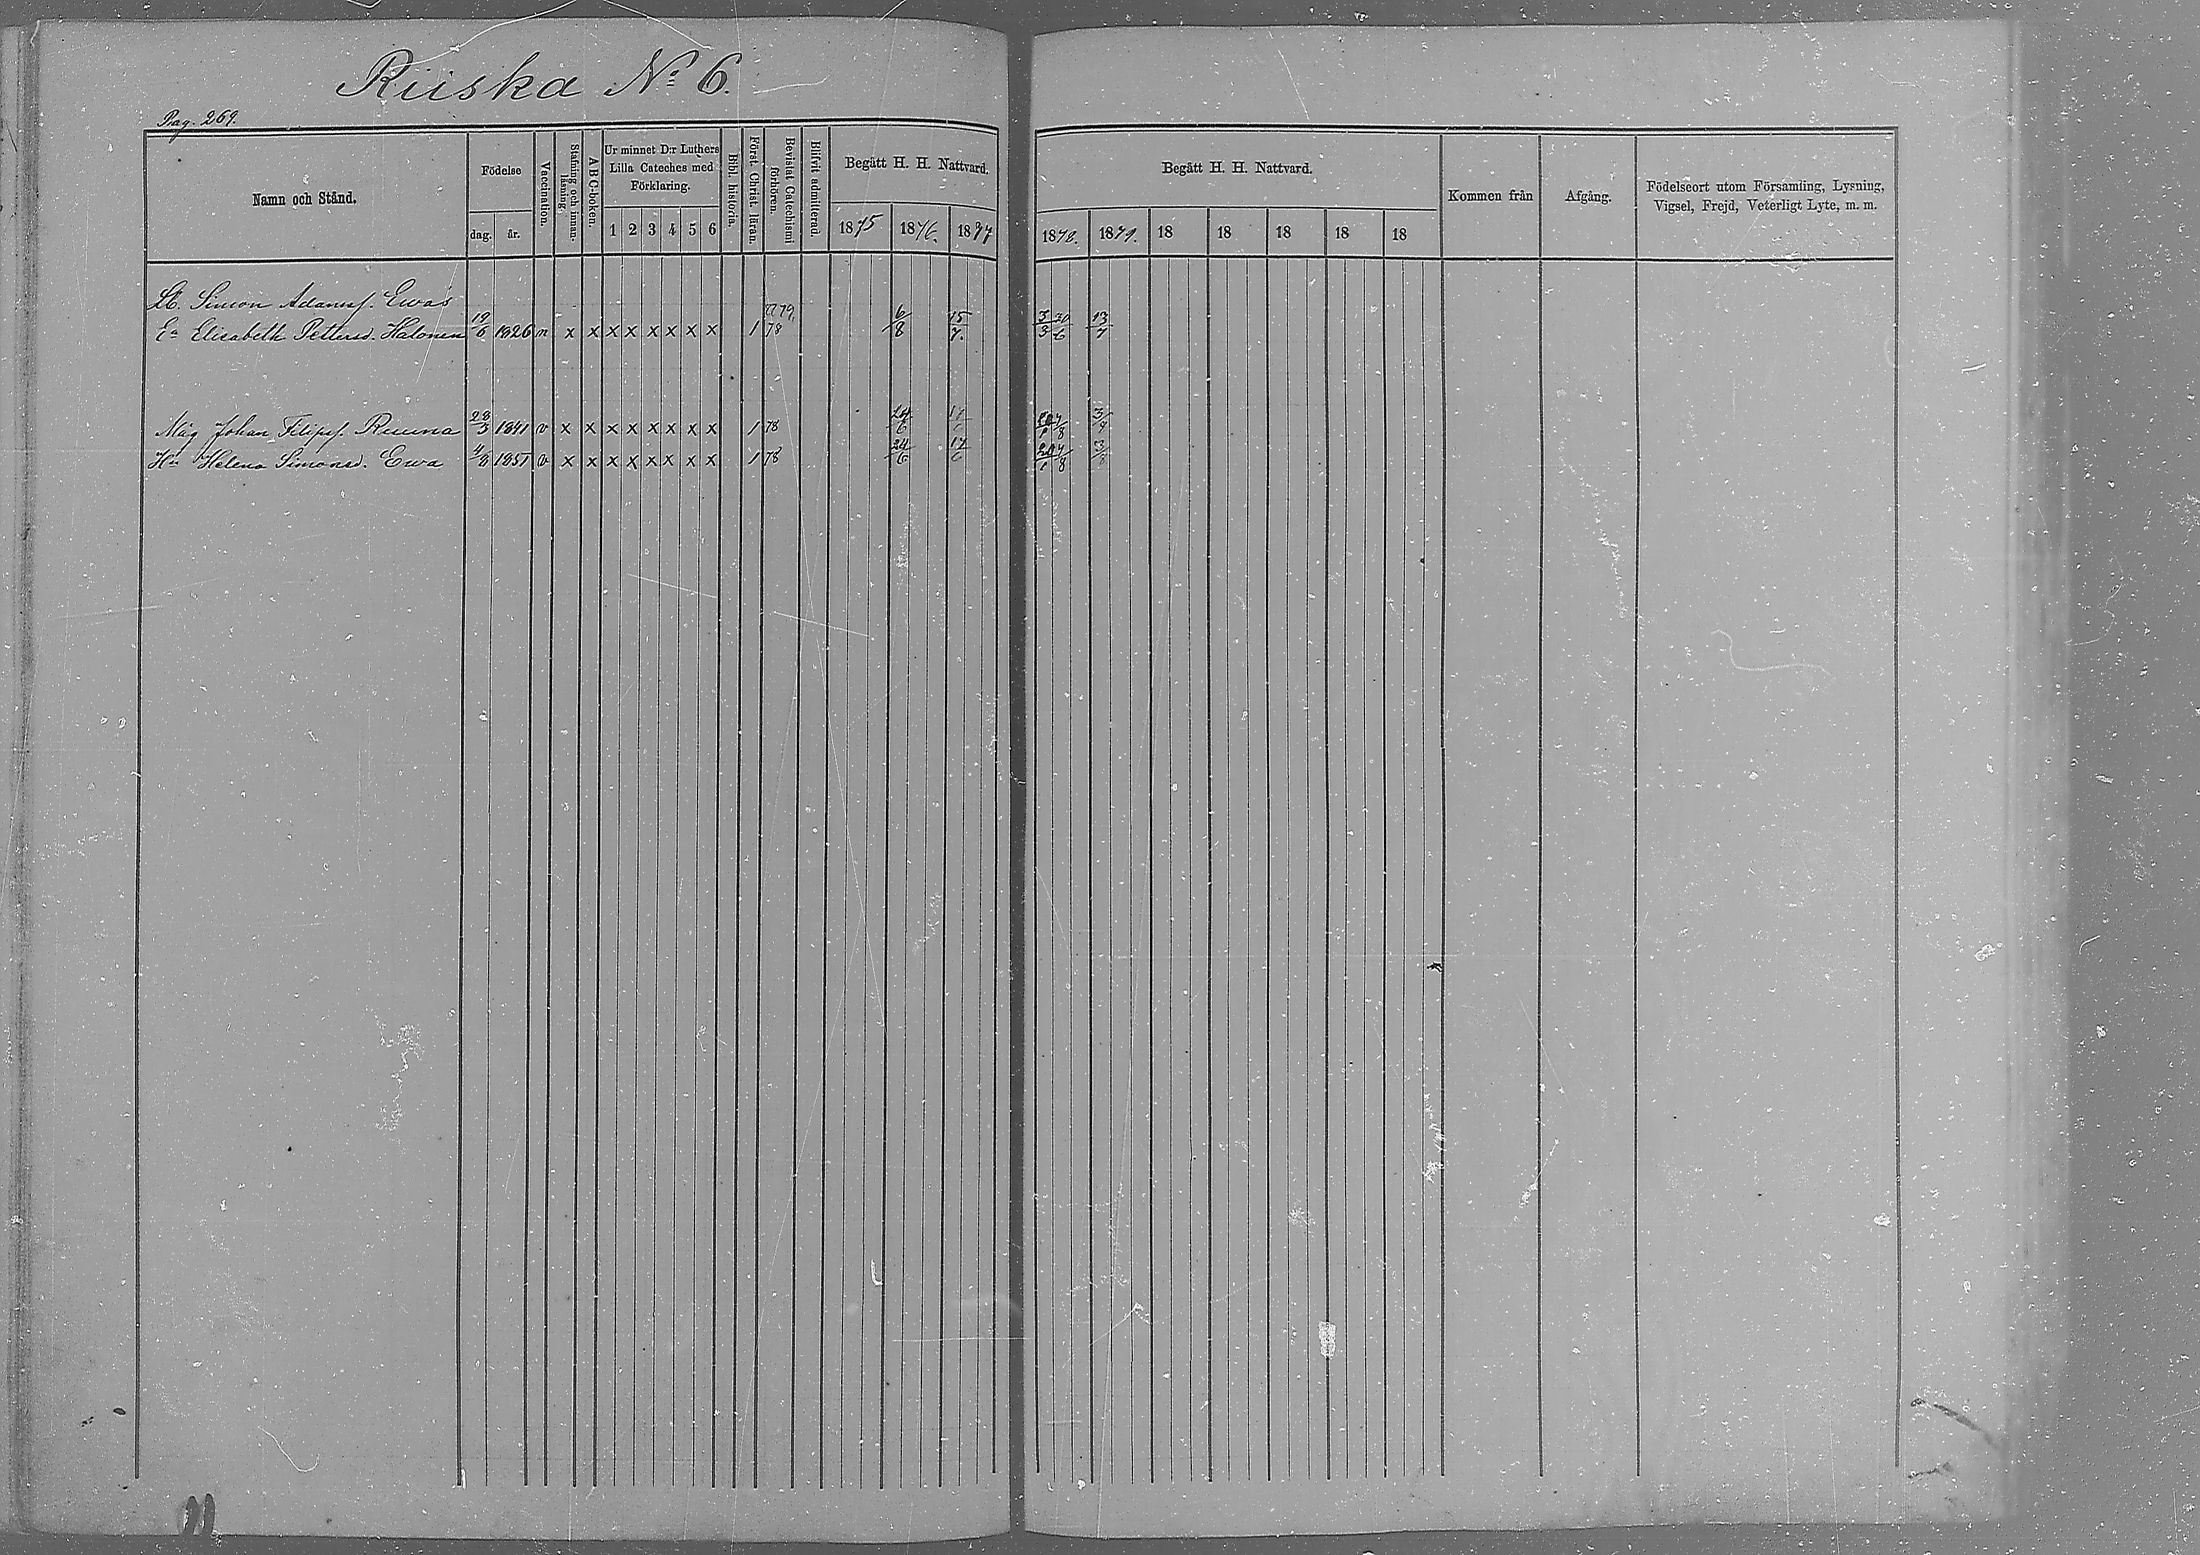 Riiska № 6.
Pag. 269.
Namn och Stånd.
Födelse
dag.
år.
Vaccination.
Stafning och innan-
läsning.
ABC-boken.
Ur minnet D:r Luthers
Lilla Cateches med
Förklaring.
1 2 3 4 5 6
Bibl. historia.
Först. Christ. läran.
Bevistat Catechismi
förhören.
Blifvit admitterad.
Begått H. H. Nattvard.
1875 1876. 1877
Begått H. H. Nattvard.
1878. 1879. 18 18 18 18 18
Kommen från
Afgång.
Födelseort utom Församling, Lysning,
Vigsel, Frejd, Veterligt Lyte, m. m.
Simon Adamsf. Ewas
Ea Elisabeth Pettersd. Halonen 19/6 1826 n x x x x x x x x 1 78 79 6/8 15/7. 3/3 30/6 13/7
Måg Johan Filipsf. Ruuna 28/3 1841 v x x x x x x x x 1 78 24/6 /8 3/
Hu Helena Simonsd. Ewa 4/8 1857 v x x x x x x x x 1 78 24/6 17/6 /8 3/8